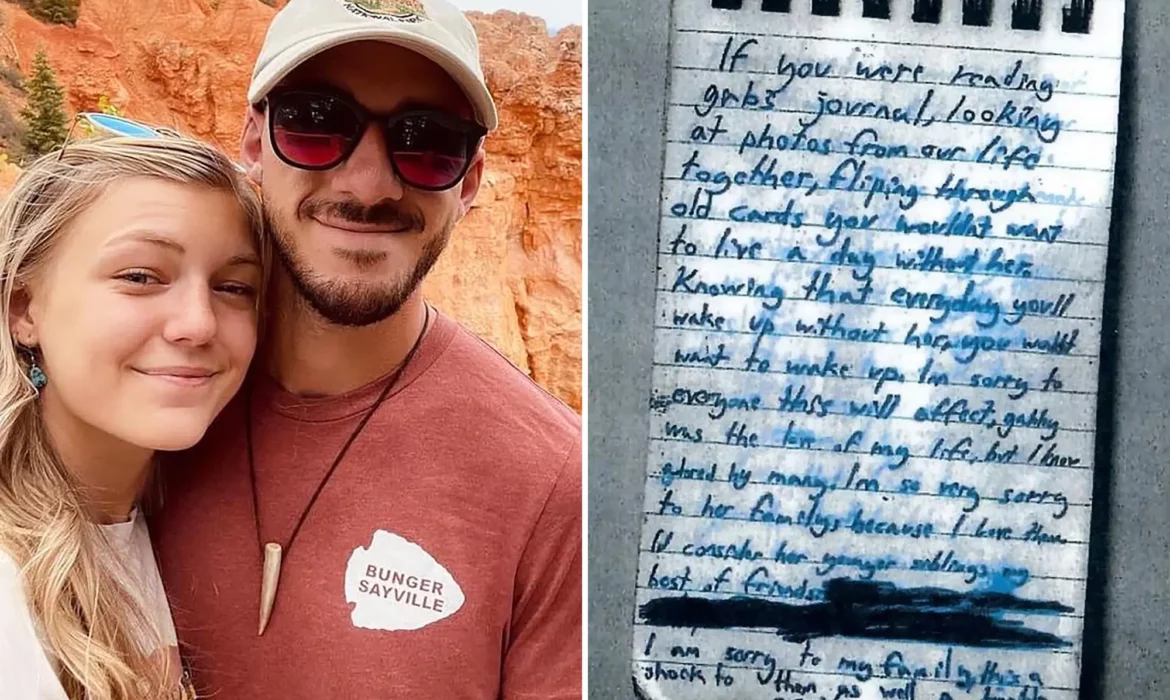 NATIONAL PARK
BUNGER
SAYVILLE
If you were reading
gabs journal, looking
at photos from our life
together, fliping through
old cards you wouldnt want
to live a day without her.
Knowing that everyday you'll
wake up without her, you wouldnt
want to wake up. I'm sorry to
everyone this will affect, gabby
was the love of my life, but I know
adored by many. I'm so very sorry
to her familys because I love them.
I'd consider her younger siblings my
best of friends.
I am sorry to my family, this is a
shock to them as well a